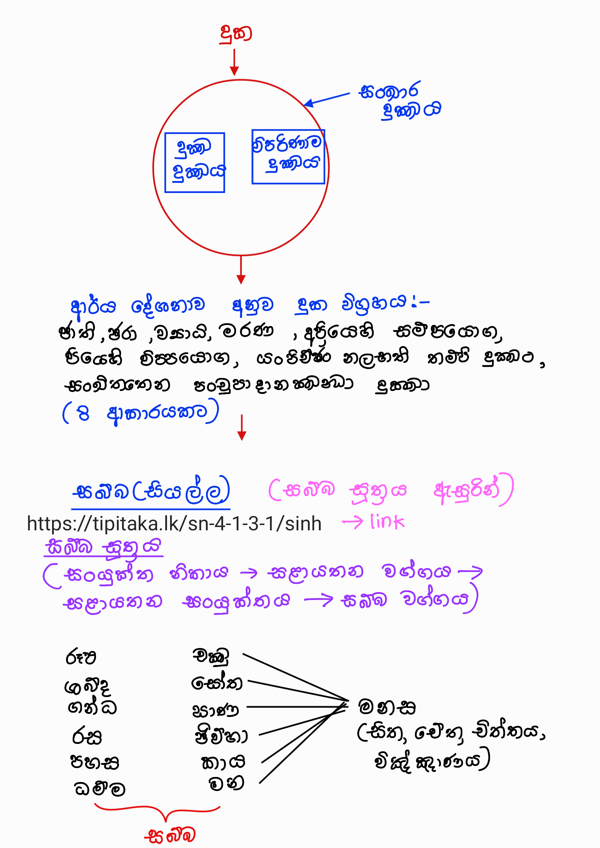 දුක
සංඛාර
දුක්ඛය
දුක්ඛ
දුක්ඛය
විපරිණාම
දුක්ඛය
ආර්ය දේශනාව අනුව දුක විග්‍රහය:-
ජාති, ජරා, ව්‍යාධි, මරණ , අප්‍රියෙහි සම්පයොග,
පියෙහි විප්පයොග, යංපිච්ඡං නලභති තම්පි දුක්ඛං,
සංඛිත්තෙන පංචුපාදානක්ඛන්ධා දුක්ඛා
(8 ආකාරයකට)
සබ්බ(සියල්ල) (සබ්බ සූත්‍රය ඇසුරින්)
https://tipitaka.lk/sn-4-1-3-1/sinh → link
සබ්බ සූත්‍රය
(සංයුක්ත නිකාය → සළායතන වග්ගය →
සළායතන සංයුක්තය → සබ්බ වග්ගය)
රූප චක්ඛු
ශබ්ද සෝත
ගන්ධ ඝාණ මනස
රස ජිව්හා (සිත, චේත, චිත්තය,
පහස කාය වික්ද්ඤාණය)
ධම්ම මන
සබ්බ